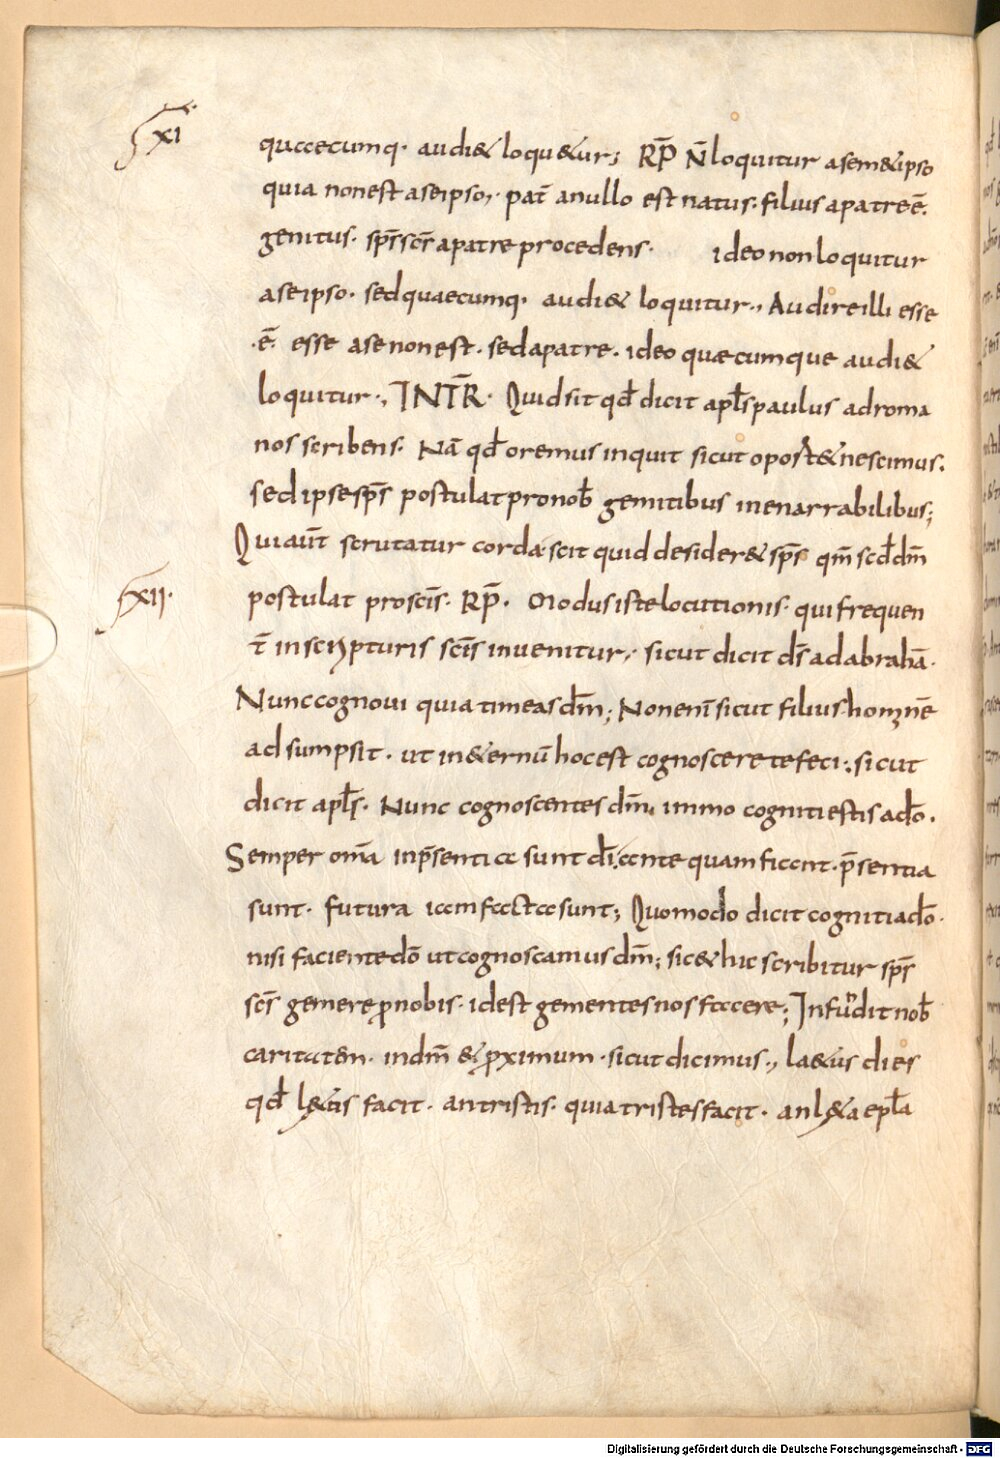 XI
quaecumq· audi& loqu&ur; RP̄ N̄ loquitur asem&ipso
quia nonest aseipso,· pat̄ anullo est natus· filius apatreē·
genitus· sp̄s sc̄s apatre procedens· ideo non loquitur
aseipso· sed quaecumq· audi& loquitur·, Audire illi esse
·ē· esse ase non est· sed apatre· ideo quæcumque audi&
loquitur·, INTR̄· Quid sit qđ dicit apl̄s paulus ad roma
nos scribens· Nā qđ oremus inquit sicut oport& nescimus·
sed ipse sp̄s postulat pronob̄ gemitibus inenarrabilibus;
Qui aūt scrutatur corda· scit quid desider& sp̄s qm̄ scd̄ dm̄
XII·
postulat pro sc̄is· RP̄· Modus iste locutionis· qui frequen
t̄ in scripturis sc̄is inuenitur,· sicut dicit d̄s ad abrahā·
Nunc cognoui quia timeas dm̄; Non enī sicut filius hominē
adsumpsit· ut in&ernū hoc est cognoscere te feci·, sicut
dicit apl̄s· Nunc cognoscentes dm̄, immo cogniti estis ado̅·
Semper om̄a inp̄sentia sunt dī, ante quam fiant· p̄sentia
sunt· futura iam facta sunt; Quomodo dicit cogniti ado̅·
nisi faciente do̅ ut cognoscamus dm̄; sic & hic scribitur sp̄s
sc̄s gemere p̱ronobis· id est gementes nos facere; Infundit nob̄
caritatem· indm̄ & p̱ximum· sicut dicimus·, la&us dies
qđ l&tis facit· an tristis· quia tristes facit· an l&a epl̄a
Digitalisierung gefördert durch die Deutsche Forschungsgemeinschaft · DFG